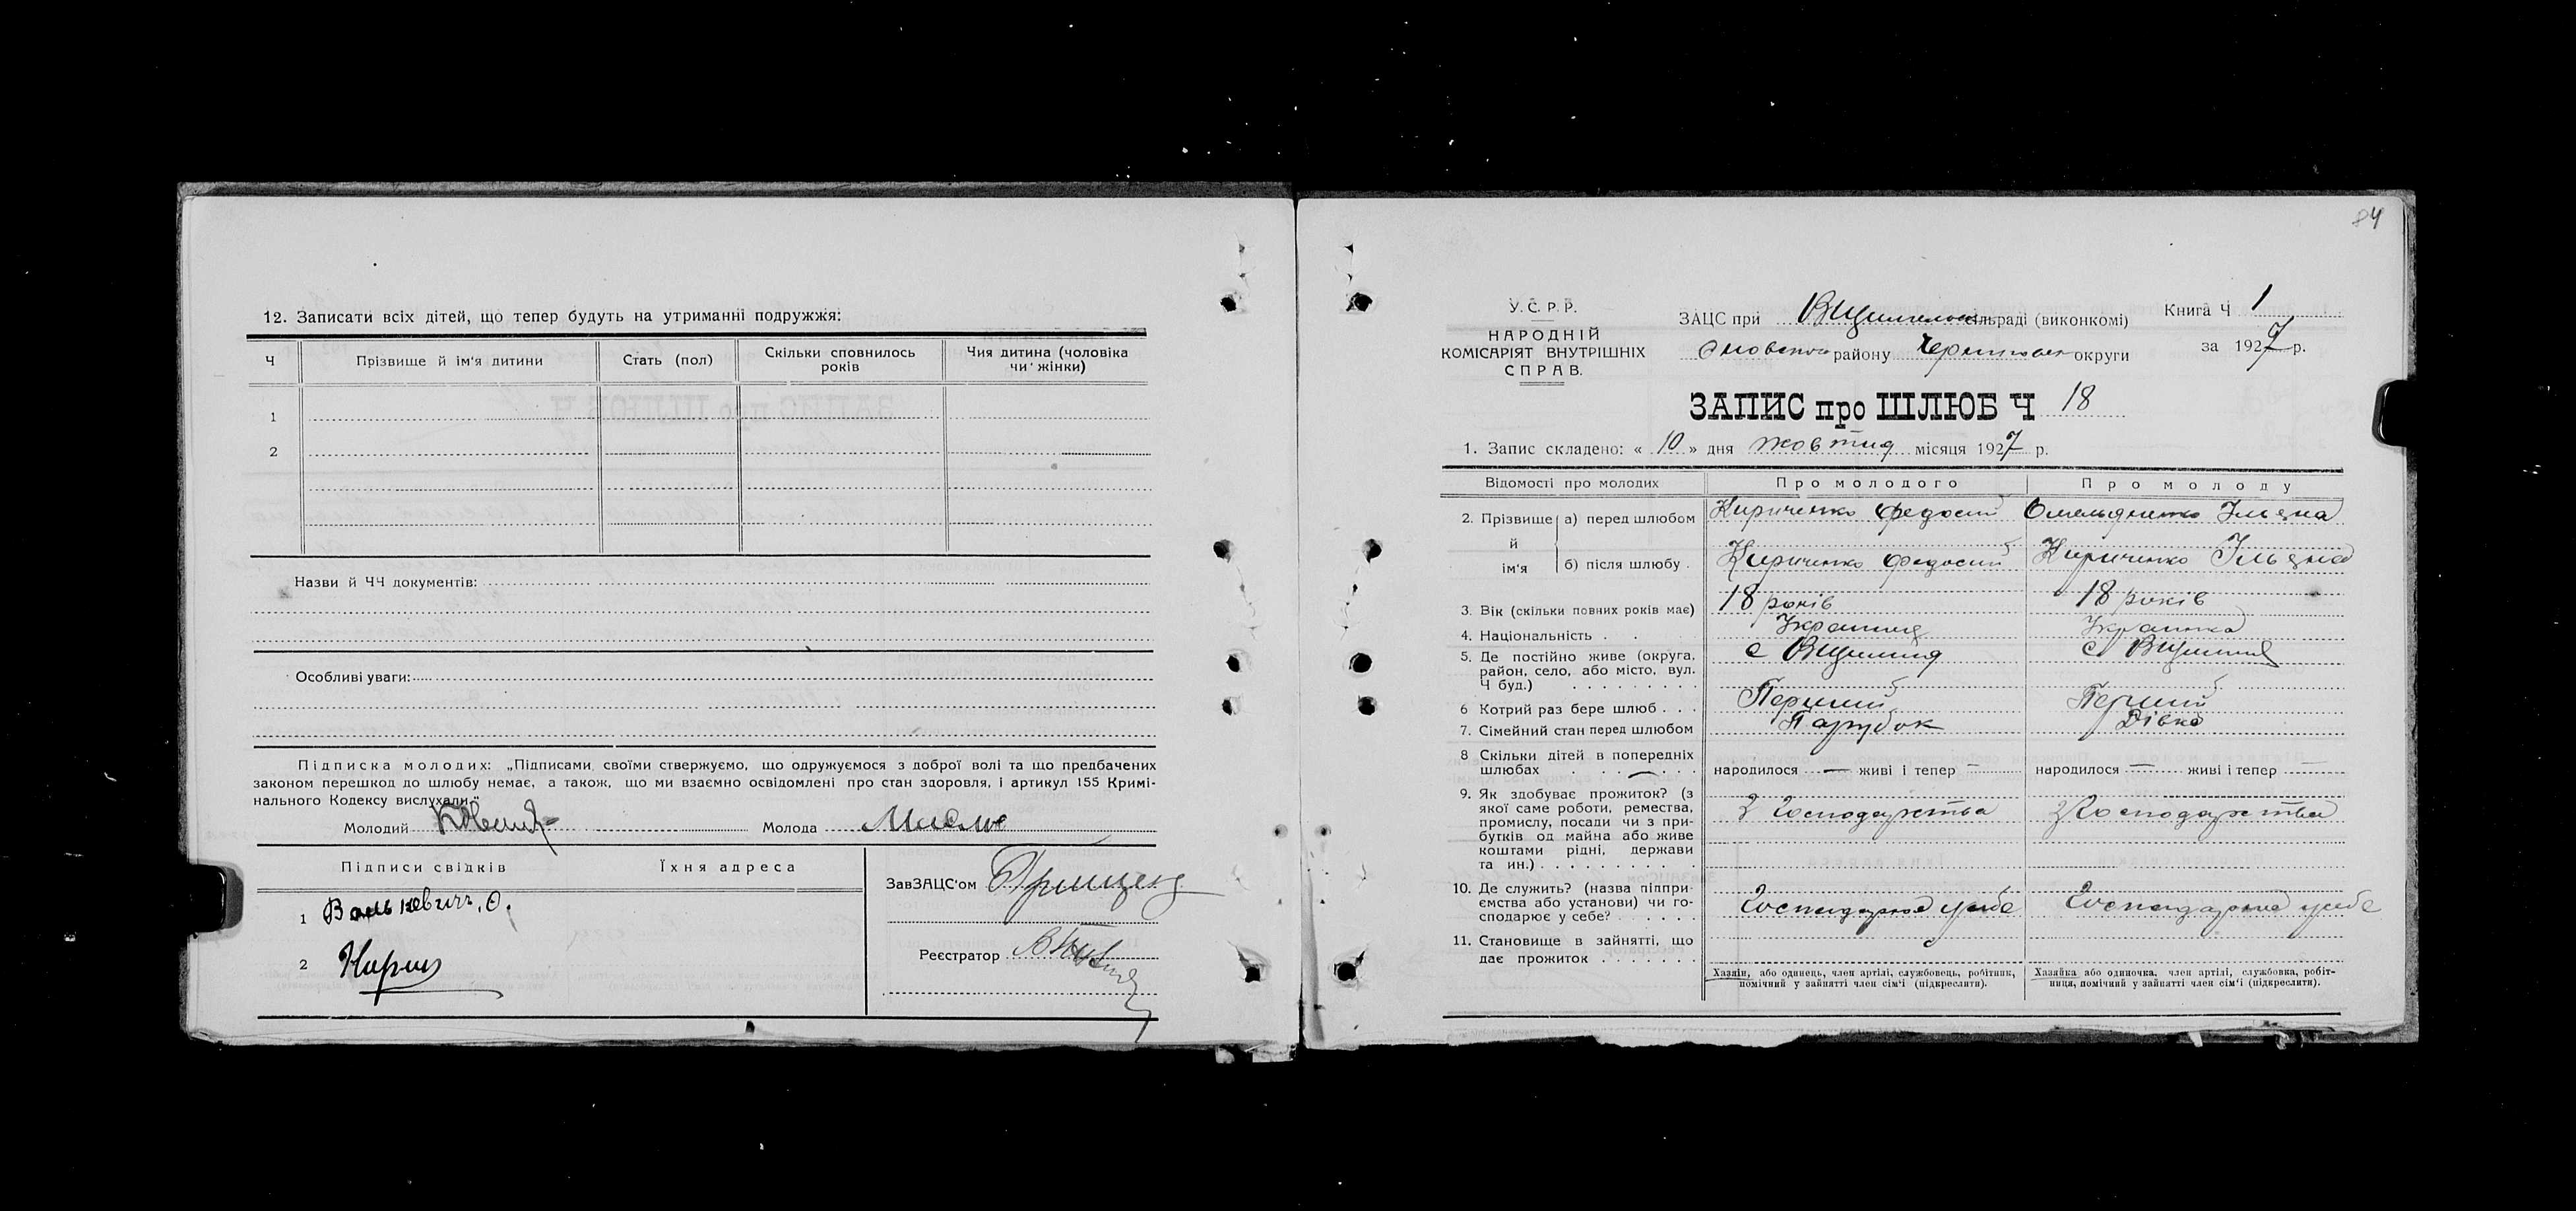 12. Записати всіх дітей, що тепер будуть на утриманні подружжя:
Ч Прізвище й ім'я дитини Стать (пол) Скільки сповнилось років Чия дитина (чоловіка чи жінки)
1
2
Назви й ЧЧ документів:
Особливі уваги:
Підписка молодих: „Підписами своїми стверджуємо, що одружуємося з доброї волі та що предбачених
законом перешкод до шлюбу немає, а також, що ми взаємно освідомлені про стан здоровля, і артикул 155 Кримі-
нального Кодексу вислухали."
Молодий Молода
Підписи свідків Їхня адреса
ЗавЗАЦС'ом
1
Реєстратор
2
84
У.С.Р.Р.
НАРОДНІЙ
КОМІСАРІЯТ ВНУТРІШНІХ
СПРАВ.
ЗАЦС при сільраді (виконкомі)
району округи
Книга Ч 1
за 1927 р.
ЗАПИС про ШЛЮБ Ч 18
1. Запис складено: « 10 » дня жовтня місяця 1927 р.
Відомості про молодих Про молодого Про молоду
2. Прізвище й ім'я а) перед шлюбом Кириченко Федосий Омельяненко Ульяна
б) після шлюбу . Кириченко Федосий Кириченко Ульяна
3. Вік (скільки повних років має) 18 років 18 років
4. Національність . . Українка
5. Де постійно живе (округа,
район, село, або місто, вул.
Ч буд.) . . . . . . . . . с с
6 Котрий раз бере шлюб . . . Перший Перший
7. Сімейний стан перед шлюбом Парубок Дівка
8 Скільки дітей в попередніх
шлюбах . . . . . . народилося — живі і тепер — народилося — живі і тепер —
9. Як здобуває прожиток? (з
якої саме роботи, ремества,
промислу, посади чи з при-
бутків од майна або живе
коштами рідні, держави
та ин.) . . . . . . . . . З Господарства З Господарства
10. Де служить? (назва піппри-
ємства або установи) чи го-
сподарює у себе? . . . . Господарює у себе Господарює у себе
11. Становище в зайнятті, що
дає прожиток . . . . . . .
Хазяін, або одинець, член артілі, службовець, робітник,
помічний у зайнятті член сім'ї (підкреслити).
Хазяйка або одиночка, член артілі, службовка, робіт-
ниця, помічний у зайнятті член сім'ї (підкреслити).